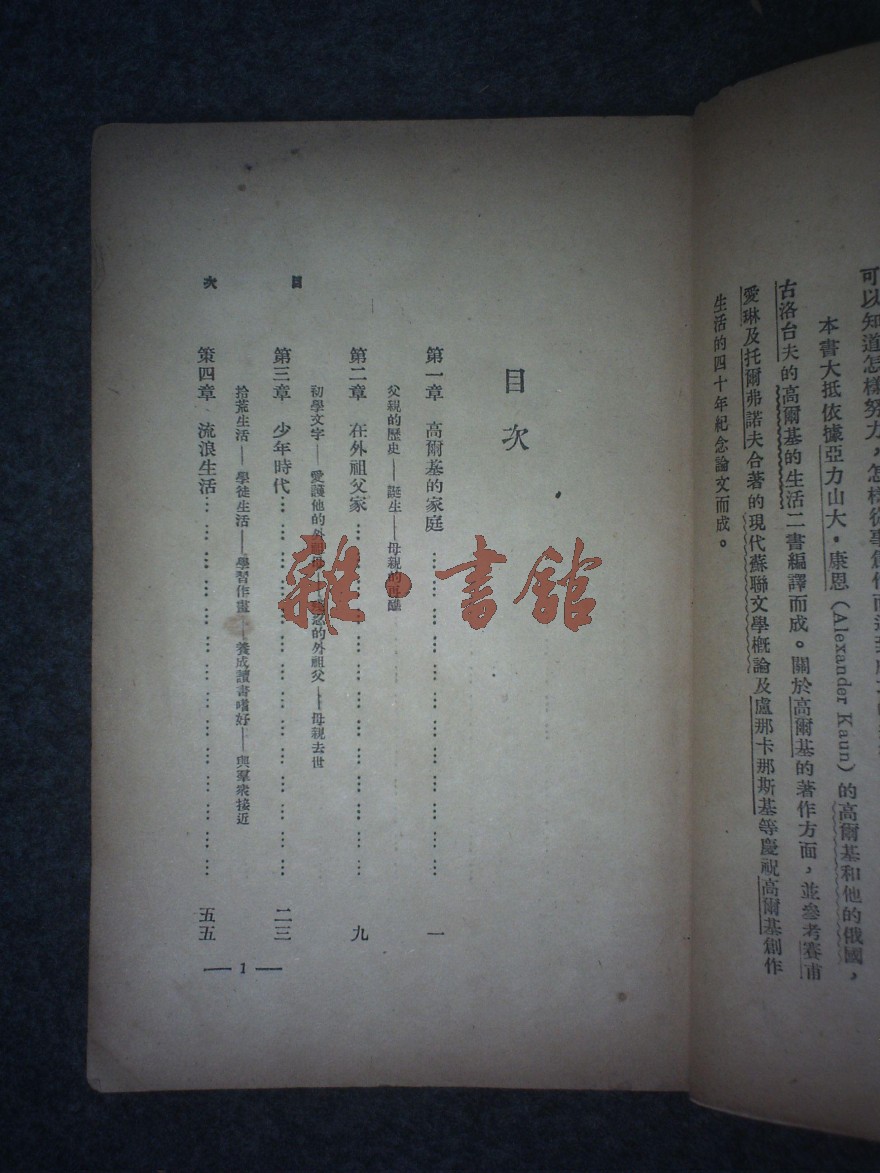 可以知道怎樣努力，怎樣從事創作而達到
本書大抵依據亞力山大·康恩（Alexander Kaun）的高爾基和他的俄國，
古洛台夫的高爾基的生活二書編譯而成。關於高爾基的著作方面，並參考賽甫
愛琳及托爾弗諾夫合著的現代蘇聯文學概論及盧那卡那斯基等慶祝高爾基創作
生活的四十年紀念論文而成。
目次
第一章 高爾基的家庭…………………………一
父親的歷史——誕生——母親的再醮
第二章 在外祖父家…………………………九
初學文字——愛護他的外祖母——殘忍的外祖父——母親去世
第三章 少年時代…………………………二三
拾荒生活——學徒生活——學習作畫——養成讀書嗜好——與羣衆接近
第四章 流浪生活…………………………五五
目 次
— 1 —
雜·書館